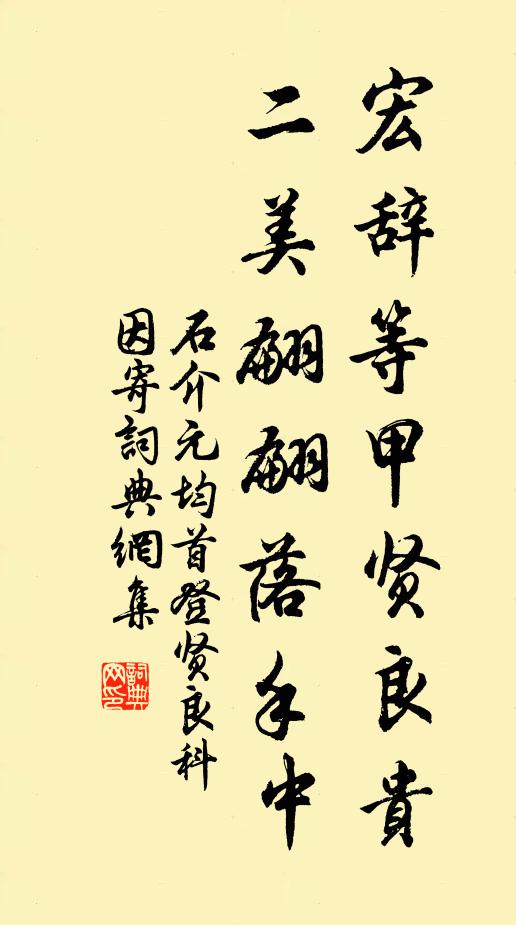 宏辞等甲贤良貴
二美翩翩落手中
石介元均首登贤良科
因寄詞典網集
詞典網印